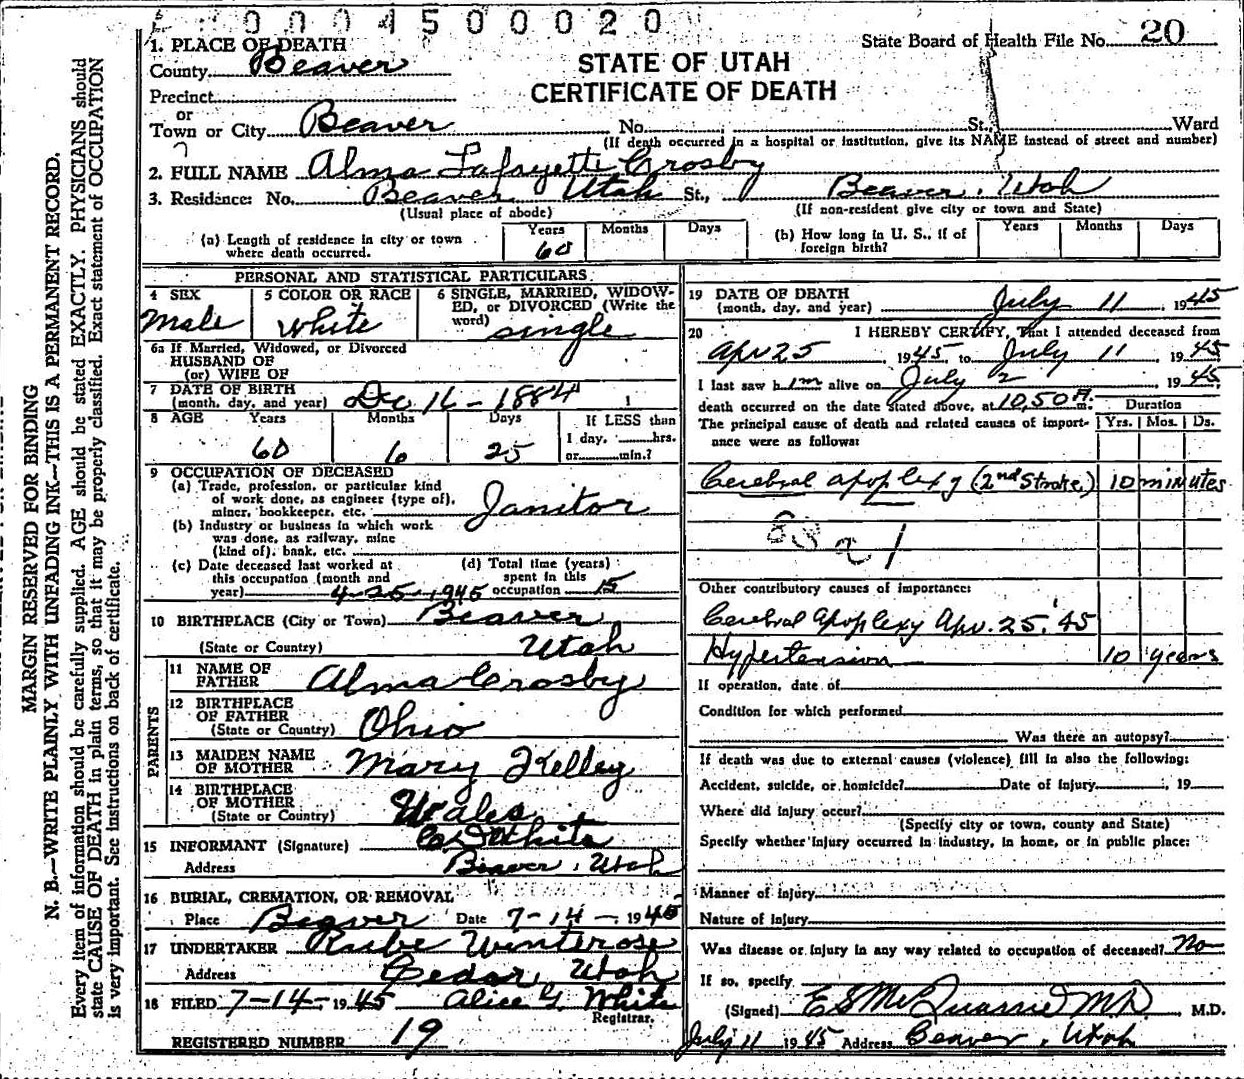 0004500020
State Board of Health File No. 20
STATE OF UTAH
CERTIFICATE OF DEATH
1. PLACE OF DEATH
County Beaver
Precinct
or
Town or City Beaver No. St., Ward
(If death occurred in a hospital or institution, give its NAME instead of street and number)
2. FULL NAME Alma Lafayette Crosby
3. Residence: No. Beaver Utah St., Beaver, Utah
(Usual place of abode) (If non-resident give city or town and State)
(a) Length of residence in city or town where death occurred. Years 60 Months Days
(b) How long in U. S., if of foreign birth? Years Months Days
PERSONAL AND STATISTICAL PARTICULARS
4 SEX Male
5 COLOR OR RACE White
6 SINGLE, MARRIED, WIDOWED, or DIVORCED (Write the word) single
6a If Married, Widowed, or Divorced
HUSBAND OF
(or) WIFE OF
7 DATE OF BIRTH
(month, day, and year) Dec 16 - 1884
8 AGE Years 60 Months 6 Days 25 If LESS than 1 day, hrs. or min.?
9 OCCUPATION OF DECEASED
(a) Trade, profession, or particular kind
of work done, as engineer (type of),
miner, bookkeeper, etc. Janitor
(b) Industry or business in which work
was done, as railway, mine
(kind of), bank, etc.
(c) Date deceased last worked at
this occupation (month and
year) 4-25-1945
(d) Total time (years)
spent in this
occupation 15
10 BIRTHPLACE (City or Town) Beaver
(State or Country) Utah
PARENTS
11 NAME OF
FATHER Alma Crosby
12 BIRTHPLACE
OF FATHER
(State or Country) Ohio
13 MAIDEN NAME
OF MOTHER Mary Kelley
14 BIRTHPLACE
OF MOTHER
(State or Country) Wales
15 INFORMANT (Signature) White
Address Beaver, Utah
16 BURIAL, CREMATION, OR REMOVAL
Place Beaver Date 7-14-1945
17 UNDERTAKER Rube Winterose
Address Cedar, Utah
18 FILED 7-14-1945 Alice G. White
Registrar.
REGISTERED NUMBER 19
19 DATE OF DEATH
(month, day, and year) July 11 1945
20 I HEREBY CERTIFY, That I attended deceased from
Apr 25, 1945, to July 11, 1945
I last saw him alive on July 2, 1945,
death occurred on the date stated above, at 10,50 A. m. Duration
The principal cause of death and related causes of importance were as follows: Yrs. Mos. Ds.
Cerebral apoplexy (2nd Stroke) 10 minutes
83 a 1
Other contributory causes of importance:
Cerebral Apoplexy Apr. 25, '45
Hypertension 10 years
If operation, date of
Condition for which performed
Was there an autopsy?
If death was due to external causes (violence) fill in also the following:
Accident, suicide, or homicide? Date of injury , 19
Where did injury occur?
(Specify city or town, county and State)
Specify whether injury occurred in industry, in home, or in public place:
Manner of injury
Nature of injury
Was disease or injury in any way related to occupation of deceased? No
If so, specify
(Signed) E S McQuarrie MD, M.D.
July 11 1945 Address Beaver, Utah
MARGIN RESERVED FOR BINDING
N. B.—WRITE PLAINLY WITH UNFADING INK—THIS IS A PERMANENT RECORD.
Every item of information should be carefully supplied. AGE should be stated EXACTLY. PHYSICIANS should
state CAUSE OF DEATH in plain terms, so that it may be properly classified. Exact statement of OCCUPATION
is very important. See instructions on back of certificate.